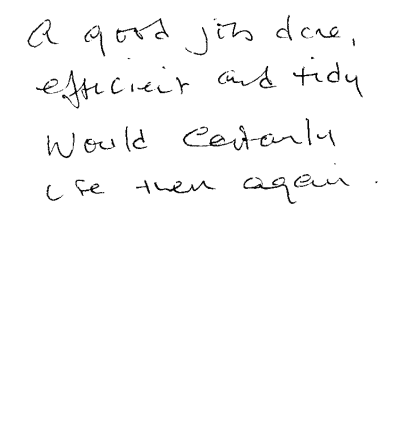 A good job done,
efficient and tidy
Would certainly
use them again.